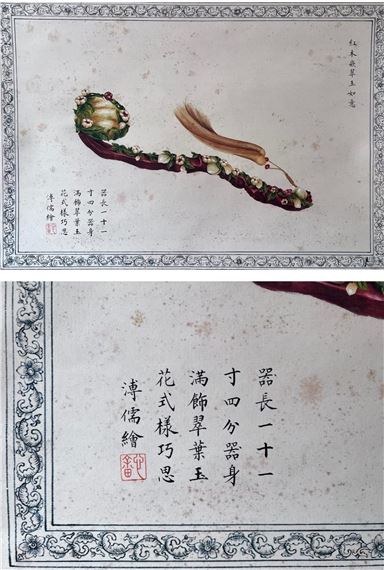 紅木嵌翠玉如意
器長一十一
寸四分器身
滿飾翠葉玉
花式樣巧思
溥儒繪
器長一十一
寸四分器身
滿飾翠葉玉
花式樣巧思
溥儒繪
心畬